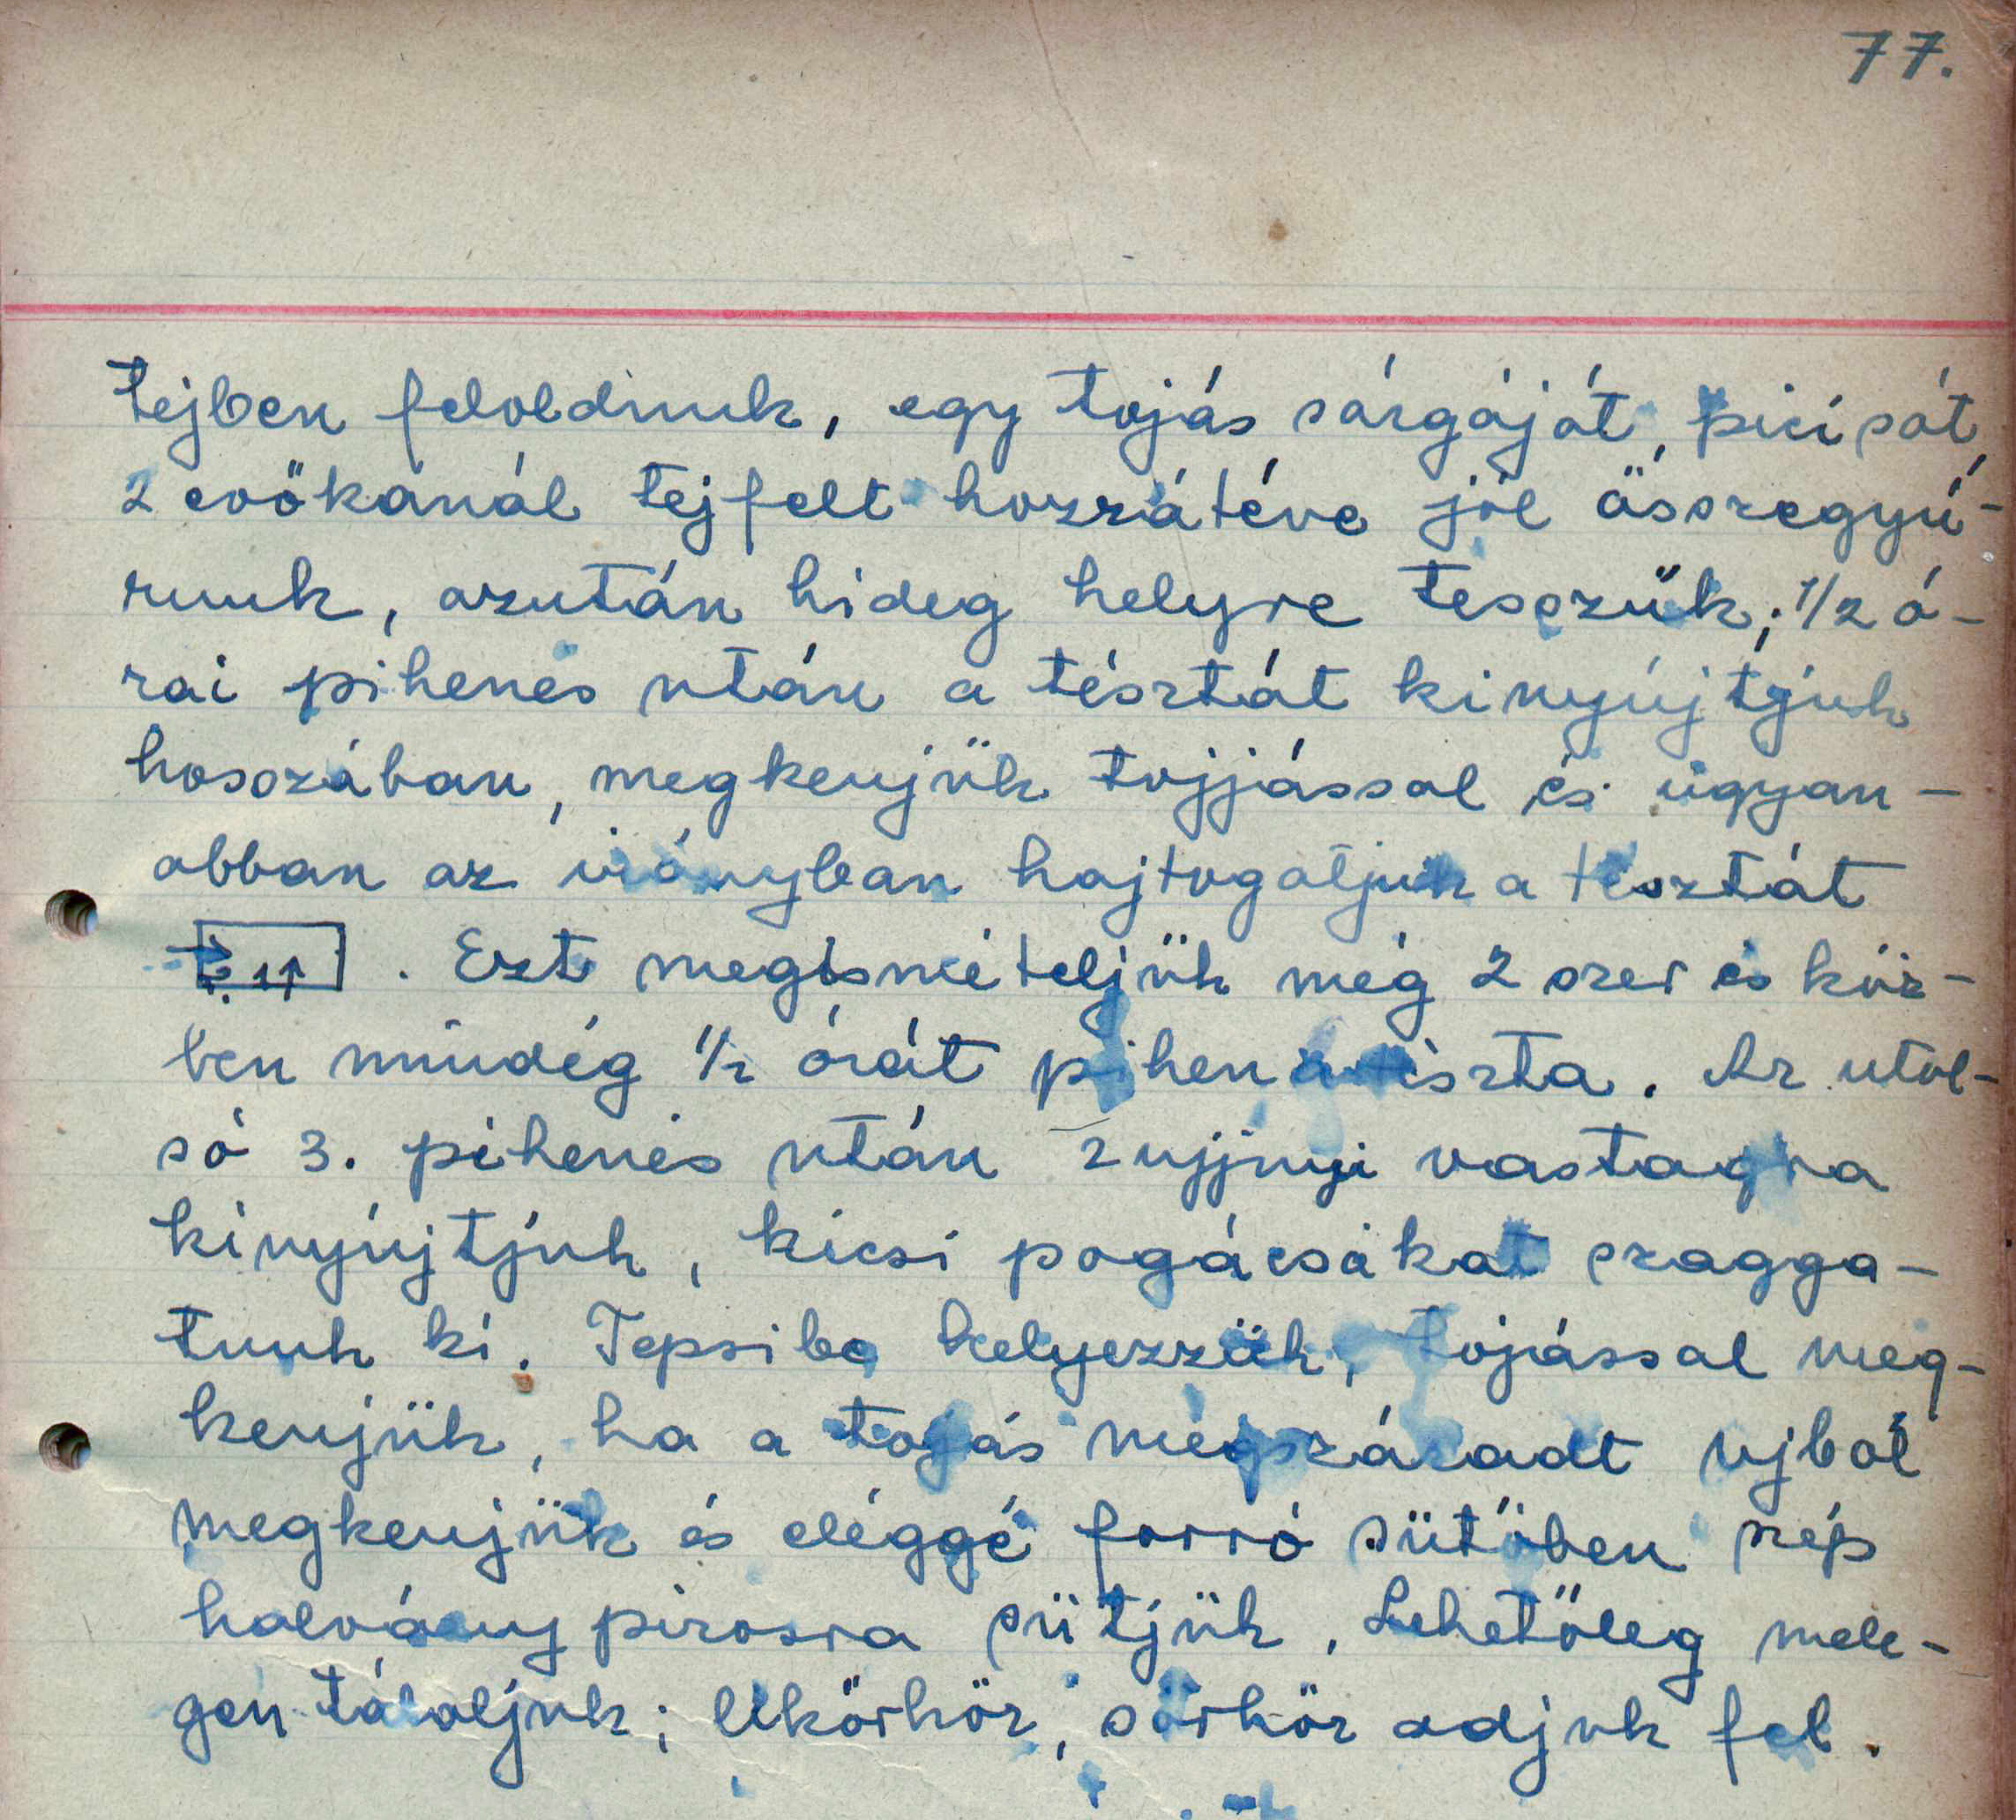 77.
tejben feloldunk, egy tojás sárgáját, pici sót,
2 evőkanál tejfelt hozzátéve jól összegyú-
runk, azután hideg helyre tesszük; 1/2 ó-
rai pihenés után a tésztát kinyújtjuk
hosszában, megkenjük tojjással és ugyan-
abban az irányban hajtogatjuk a tésztát
. Ezt megismételjük még 2 szer és köz-
ben mindég 1/2 órát pihen a tészta. Az utol-
só 3. pihenés után 2 ujjnyi vastagra
kinyújtjuk, kicsi pogácsákat szagga-
tunk ki. Tepsibe helyezzük, tojással meg-
kenjük, ha a tojás megszáradt ujból
megkenjük és eléggé forró sütőben szép
halvány pirosra sütjük. Lehetőleg mele-
gen tálaljuk; likőrhöz, sörhöz adjuk fel.